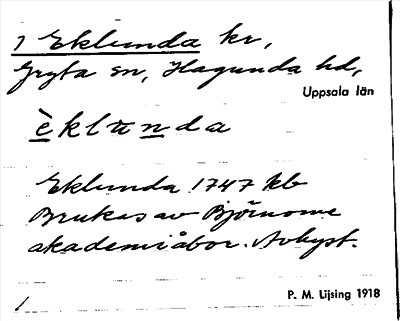 1 Eklunda kr,
Gryta sn, Hagunda hd,
Uppsala län
èklūnda
Eklunda 1747 kb
Brukas av Björnome
akademiåbor. Avhyst.
P. M. Lijsing 1918
/